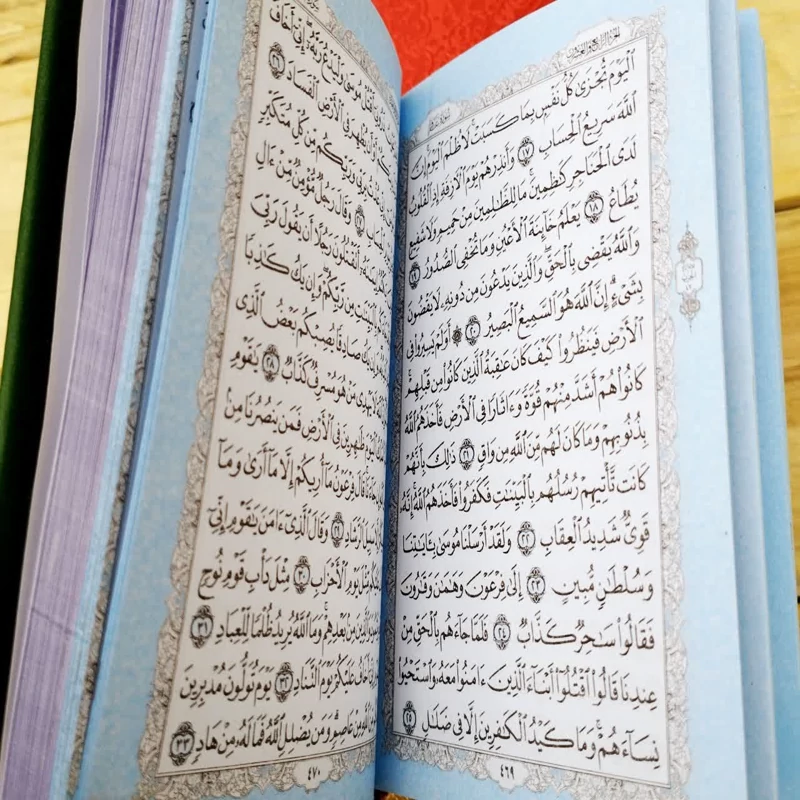 الجزء الرابع والعشرون
ٱلْيَوْمَ تُجْزَىٰ كُلُّ نَفْسٍۭ بِمَا كَسَبَتْ ۚ لَا ظُلْمَ ٱلْيَوْمَ ۚ إِنَّ
ٱللَّهَ سَرِيعُ ٱلْحِسَابِ ١٧ وَأَنذِرْهُمْ يَوْمَ ٱلْـَٔازِفَةِ إِذِ ٱلْقُلُوبُ
لَدَى ٱلْحَنَاجِرِ كَـٰظِمِينَ ۚ مَا لِلظَّـٰلِمِينَ مِنْ حَمِيمٍ وَلَا شَفِيعٍ
يُطَاعُ ١٨ يَعْلَمُ خَآئِنَةَ ٱلْأَعْيُنِ وَمَا تُخْفِى ٱلصُّدُورُ ١٩
وَٱللَّهُ يَقْضِى بِٱلْحَقِّ ۖ وَٱلَّذِينَ يَدْعُونَ مِن دُونِهِۦ لَا يَقْضُونَ
بِشَىْءٍ ۗ إِنَّ ٱللَّهَ هُوَ ٱلسَّمِيعُ ٱلْبَصِيرُ ٢٠ ۞ أَوَلَمْ يَسِيرُوا۟ فِى
ٱلْأَرْضِ فَيَنظُرُوا۟ كَيْفَ كَانَ عَـٰقِبَةُ ٱلَّذِينَ كَانُوا۟ مِن قَبْلِهِمْ ۚ
كَانُوا۟ هُمْ أَشَدَّ مِنْهُمْ قُوَّةً وَءَاثَارًا فِى ٱلْأَرْضِ فَأَخَذَهُمُ ٱللَّهُ
بِذُنُوبِهِمْ وَمَا كَانَ لَهُم مِّنَ ٱللَّهِ مِن وَاقٍ ٢١ ذَٰلِكَ بِأَنَّهُمْ
كَانَت تَّأْتِيهِمْ رُسُلُهُم بِٱلْبَيِّنَـٰتِ فَكَفَرُوا۟ فَأَخَذَهُمُ ٱللَّهُ ۚ إِنَّهُۥ
قَوِىٌّ شَدِيدُ ٱلْعِقَابِ ٢٢ وَلَقَدْ أَرْسَلْنَا مُوسَىٰ بِـَٔايَـٰتِنَا
وَسُلْطَـٰنٍ مُّبِينٍ ٢٣ إِلَىٰ فِرْعَوْنَ وَهَـٰمَـٰنَ وَقَـٰرُونَ
فَقَالُوا۟ سَـٰحِرٌ كَذَّابٌ ٢٤ فَلَمَّا جَآءَهُم بِٱلْحَقِّ مِنْ
عِندِنَا قَالُوا۟ ٱقْتُلُوٓا۟ أَبْنَآءَ ٱلَّذِينَ ءَامَنُوا۟ مَعَهُۥ وَٱسْتَحْيُوا۟
نِسَآءَهُمْ ۚ وَمَا كَيْدُ ٱلْكَـٰفِرِينَ إِلَّا فِى ضَلَـٰلٍ ٢٥
٤٦٩
أَقْتُلْ مُوسَىٰ وَلْيَدْعُ رَبَّهُۥٓ ۖ إِنِّىٓ أَخَافُ
أَوْ أَن يُظْهِرَ فِى ٱلْأَرْضِ ٱلْفَسَادَ ٢٦
بِرَبِّى وَرَبِّكُم مِّن كُلِّ مُتَكَبِّرٍ
٢٧ وَقَالَ رَجُلٌ مُّؤْمِنٌ مِّنْ ءَالِ
أَتَقْتُلُونَ رَجُلًا أَن يَقُولَ رَبِّىَ
مِن رَّبِّكُمْ ۖ وَإِن يَكُ كَـٰذِبًا
صَادِقًا يُصِبْكُم بَعْضُ ٱلَّذِى
لَا يَهْدِى مَنْ هُوَ مُسْرِفٌ كَذَّابٌ ٢٨ يَـٰقَوْمِ
ٱلْيَوْمَ ظَـٰهِرِينَ فِى ٱلْأَرْضِ فَمَن يَنصُرُنَا مِنۢ
قَالَ فِرْعَوْنُ مَآ أُرِيكُمْ إِلَّا مَآ أَرَىٰ وَمَآ
سَبِيلَ ٱلرَّشَادِ ٢٩ وَقَالَ ٱلَّذِىٓ ءَامَنَ يَـٰقَوْمِ إِنِّىٓ
مِّثْلَ يَوْمِ ٱلْأَحْزَابِ ٣٠ مِثْلَ دَأْبِ قَوْمِ نُوحٍ
مِنۢ بَعْدِهِمْ ۚ وَمَا ٱللَّهُ يُرِيدُ ظُلْمًا لِّلْعِبَادِ ٣١
أَخَافُ عَلَيْكُمْ يَوْمَ ٱلتَّنَادِ ٣٢ يَوْمَ تُوَلُّونَ مُدْبِرِينَ
مِنْ عَاصِمٍ ۗ وَمَن يُضْلِلِ ٱللَّهُ فَمَا لَهُۥ مِنْ هَادٍ ٣٣
٤٧٠